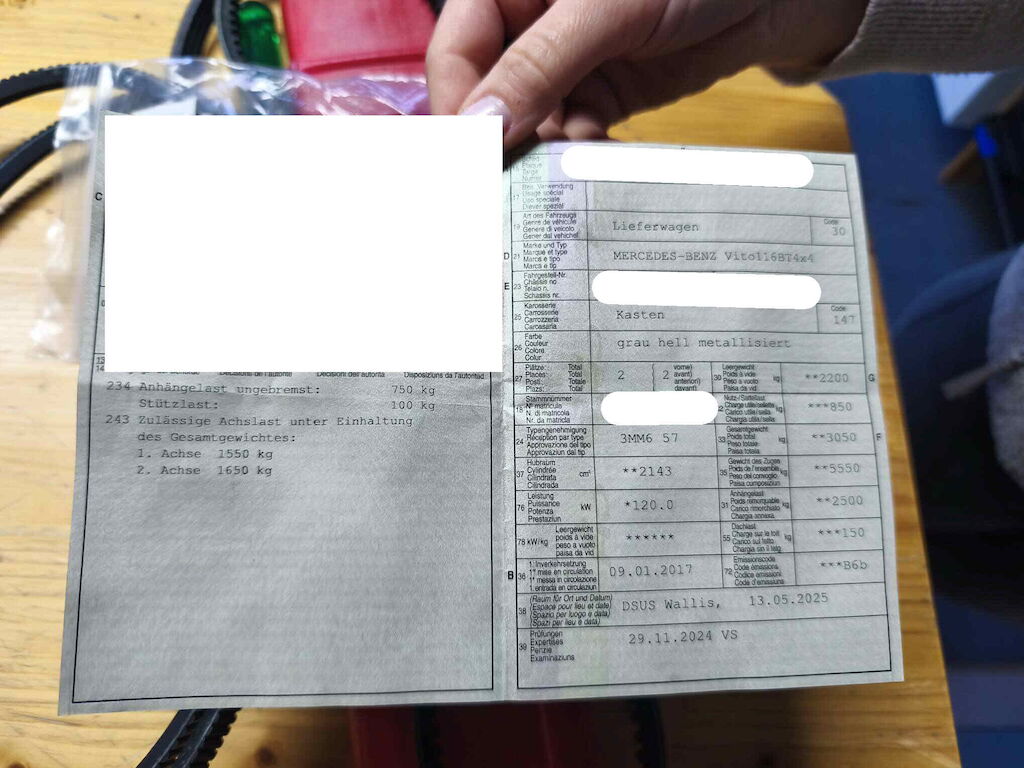 C
Decisions de l'autorité Decisioni dell'autorità Disposiziuns da l'autoritad
234 Anhängelast ungebremst: 750 kg
Stützlast: 100 kg
243 Zulässige Achslast unter Einhaltung
des Gesamtgewichtes:
1. Achse 1550 kg
2. Achse 1650 kg
Schild
Plaque
Targa
Numer
17 Bes. Verwendung
Usage spécial
Uso speciale
Diever spezial
19 Art des Fahrzeugs
Genre de véhicule
Genere di veicolo
Gener dal vehichel
Lieferwagen
Code
30
D 21 Marke und Typ
Marque et type
Marca e tipo
Marca e tip
MERCEDES-BENZ Vito116BT4x4
E 23 Fahrgestell-Nr.
Châssis no
Telaio n.
Schassis nr.
25 Karosserie
Carrosserie
Carrozzeria
Carosaria
Kasten
Code
147
26 Farbe
Couleur
Colore
Colur
grau hell metallisiert
27 Plätze: Total
Places: Total
Posti: Totale
Plazs: Total
2
2
vorne)
avant)
anteriori)
davant)
30 Leergewicht
Poids à vide
Peso a vuoto
Paisa da vid
kg
**2200
G
18 Stammnummer
N° matricule
N. di matricola
Nr. da matricla
Nutz-/Sattellast
Charge utile/sellette
Carico utile/sella
Chargia utila/sella
kg
***850
24 Typengenehmigung
Réception par type
Approvazione del tipo
Approvaziun dal tip
3MM6 57
33 Gesamtgewicht
Poids total
Peso totale
Paisa totala
kg
**3050
F
37 Hubraum
Cylindrée
Cilindrata
Cilindrada
cm³
**2143
35 Gewicht des Zuges
Poids de l'ensemble
Peso del convoglio
Paisa cumposiziun
kg
**5550
76 Leistung
Puissance
Potenza
Prestaziun
kW
*120.0
31 Anhängelast
Poids remorquable
Carico rimorchiato
Chargia annexa
kg
**2500
78 kW/kg
Leergewicht
poids à vide
peso a vuoto
paisa da vid
******
55 Dachlast
Charge sur le toit
Carico sul tetto
Chargia sin il tetg
kg
***150
B 36 1. Inverkehrsetzung
1re mise en circulation
1a messa in circolazione
1. entrada en circulaziun
09.01.2017
72 Emissionscode
Code émissions
Codice emissioni
Code d'emissiuns
***B6b
38 (Raum für Ort und Datum)
(Espace pour lieu et date)
(Spazio per luogo e data)
(Spazi per lieu e data)
DSUS Wallis, 13.05.2025
39 Prüfungen
Expertises
Perizie
Examinaziuns
29.11.2024 VS